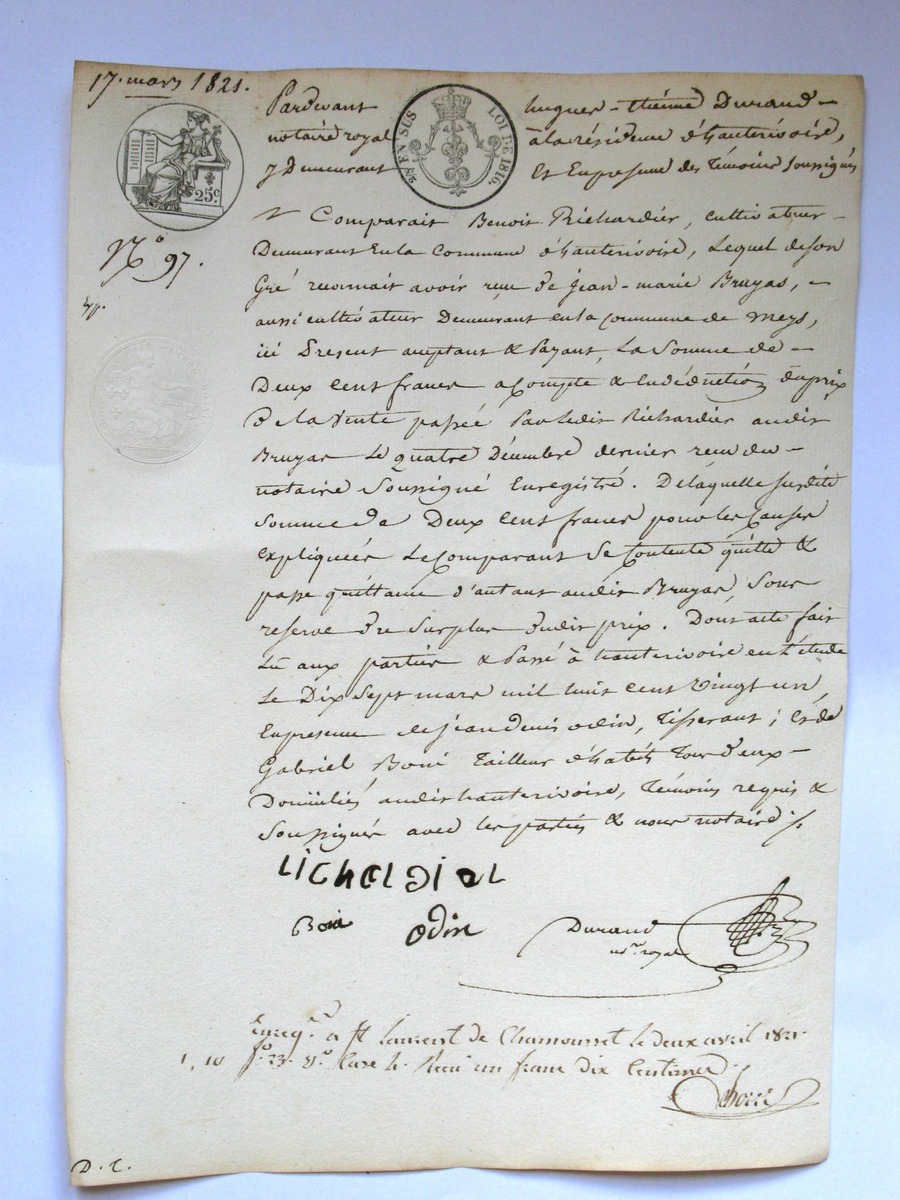 17. mars 1821.
Pardevant hugues-etienne Durand-
notaire royal à la résidence d'hauterivoire,
y Demeurant Et En presence des Témoins soussignés
EN SUS
LOI DE 1816.
25c
N° 97.
Comparait Benoit Richardier, cultivateur-
Demeurant En la Commune d'hauterivoire, Lequel de son
Gré reconnait avoir reçu de jean-marie Bruyas, -
aussi cultivateur Demeurant en la Commune de Meys,
ici Present acceptant & Payant, La Somme de -
Deux Cent francs acompte & En déduction du prix
de la Vente passée Par ledit Richardier audit
Bruyas Le quatre Décembre dernier recu du -
notaire Soussigné Enregistré. De laquelle susdite
Somme de Deux Cent francs pour les Causes
Expliquées Le Comparant Se Contente quitte &
passe quittance d'autant audit Bruyas, Sous
reserve du Surplus dudit prix. Dont acte fait
Lu aux parties & Passé à hauterivoire en L'étude
Le Dix Sept mars mil huit cent Vingt un,
En presence de jean Denis odin, Tisserant; Et de
Gabriel Boni Tailleur d'habits Tous d'eux-
Domiciliés audit hauterivoire, Témoins requis &
Soussignés avec les parties & nous notaire ./.
richardier
Boni odin Durand
nre. royal
Enregé. à St Laurent de Chamousset le deux avril 1821.
1,10 fo. 23. vo. Case 4. Recu un franc dix Centimes.
D. C.